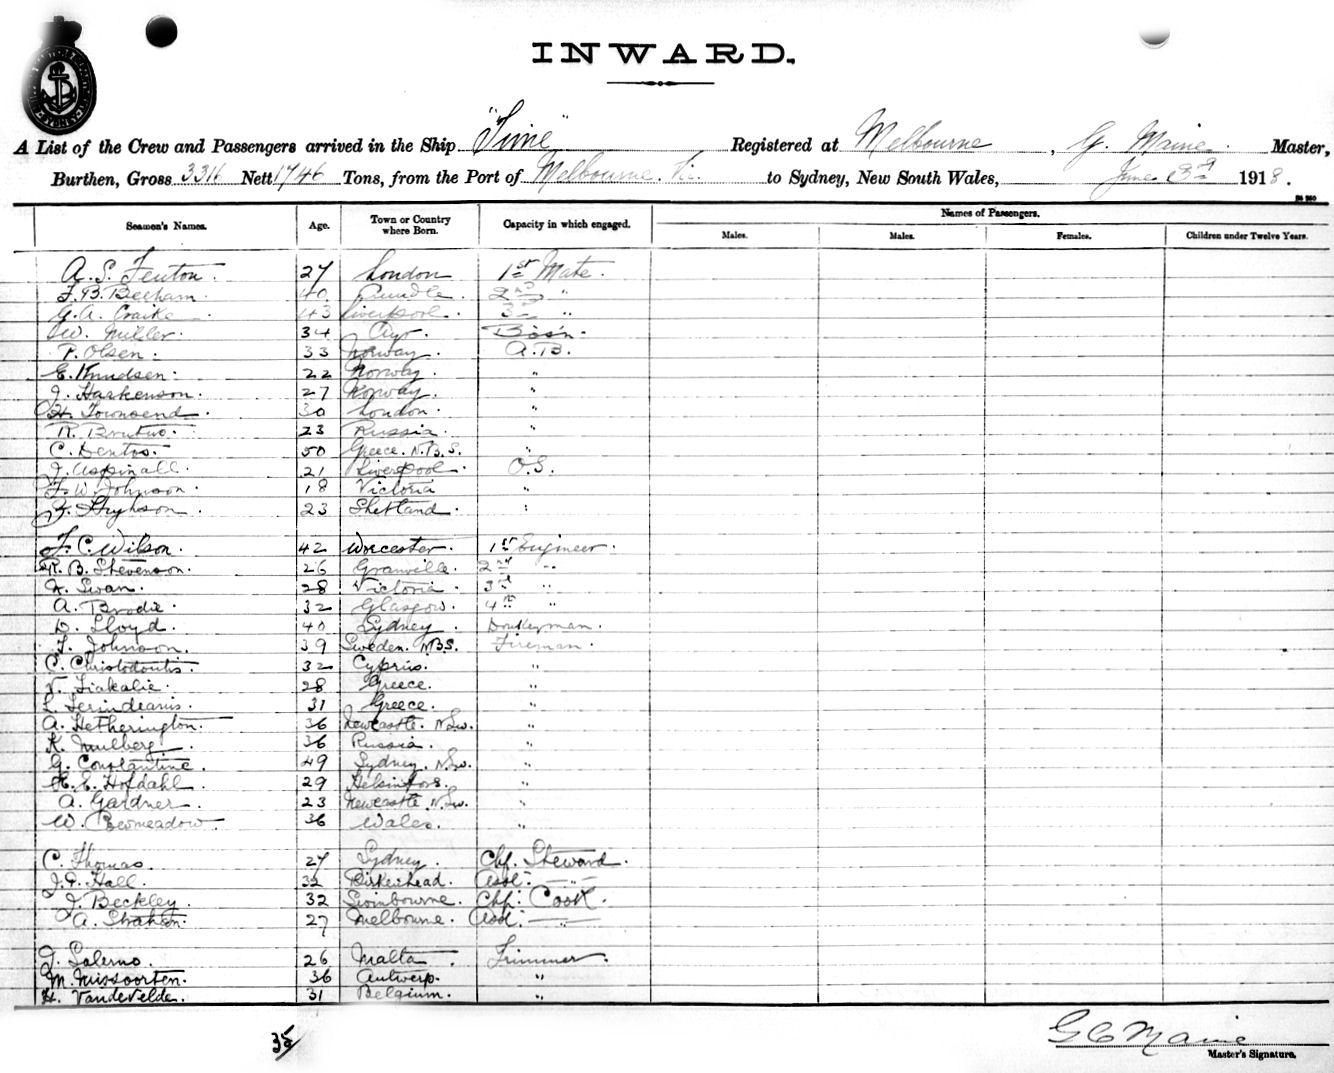 INWARD.
A List of the Crew and Passengers arrived in the Ship "Time" Registered at Melbourne, G. Maine. Master,
Burthen, Gross 3316 Nett 1746 Tons, from the Port of Melbourne. Vic. to Sydney, New South Wales, June 3rd 1918.
Seamen's Names. Age. Town or Country where Born. Capacity in which engaged. Names of Passengers.
Males. Males. Females. Children under Twelve Years.
A. S. Fenton. 27 London 1st Mate.
F. B. Beecham. 40 2nd "
G. A. Craike. 43 Liverpool. 3rd "
W. Miller. 34 Ayr. Bos'n.
P. Olsen. 33 Norway. A.B.
E. Knudsen. 22 Norway. "
J. Haskenson. 27 Norway. "
H. Townsend. 30 London. "
R. 23 Russia. "
C. Dentos. 50 Greece. N.B.S. "
J. Aspinall. 21 Liverpool. O.S.
F. W. Johnson. 18 Victoria "
23 Shetland. "
F. C. Wilson. 42 Worcester. 1st Engineer.
R. B. Stevenson. 26 Granville. 2nd "
Swan. 28 Victoria. 3rd "
A. Brodie. 32 Glasgow. 4th "
D. Lloyd. 40 Sydney Donkeyman.
F. Johnson. 39 Sweden. N.B.S. Fireman.
C. Christodoutis. 32 Cyprus. "
28 Greece. "
31 Greece. "
A. Hetherington. 36 Newcastle. N.S.W. "
K. Mulberg. 36 Russia. "
G. Constantine. 49 Sydney. N.S.W. "
H. E. Hofdahl. 29 Helsinfors. "
A. Gardner. 23 Newcastle. N.S.W. "
W. Bowmeadow. 36 Wales. "
C. Thomas. 27 Sydney. Chf. Steward.
J. F. Hall. 32 Birkenhead. Asst. "
J. Beckley. 32 Chf. Cook.
A. Strahan. 27 Melbourne. Asst. "
J. Salerno. 26 Malta. Trimmer.
M. Missoorten. 36 Antwerp. "
H. Vandevelde. 31 Belgium. "
35
G C Maine
Master's Signature.